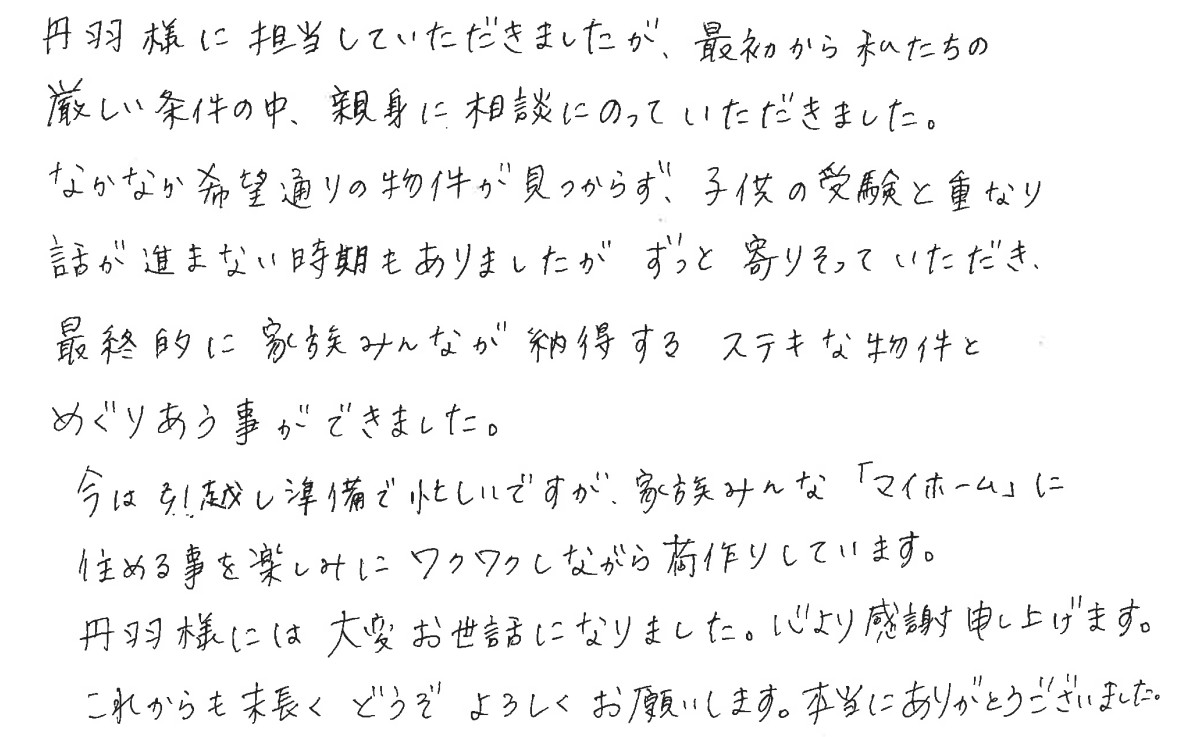 丹羽様に担当していただきましたが、最初から私たちの
厳しい条件の中、親身に相談にのっていただきました。
なかなか希望通りの物件が見つからず、子供の受験と重なり
話が進まない時期もありましたが ずっと寄りそっていただき、
最終的に家族みんなが納得する ステキな物件と
めぐりあう事ができました。
今は引越し準備で忙しいですが、家族みんな「マイホーム」に
住める事を楽しみにワクワクしながら荷作りしています。
丹羽様には大変お世話になりました。心より感謝申し上げます。
これからも末長くどうぞよろしくお願いします。本当にありがとうございました。